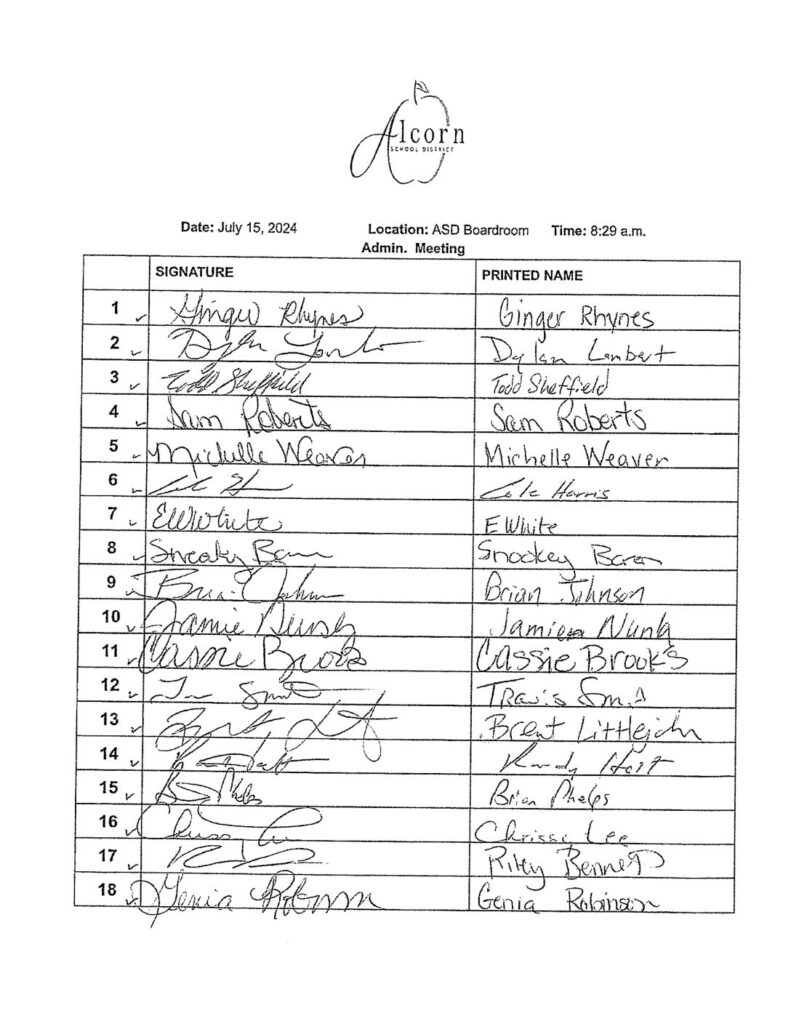 Alcorn
SCHOOL DISTRICT
Date: July 15, 2024 Location: ASD Boardroom Time: 8:29 a.m.
Admin. Meeting
SIGNATURE PRINTED NAME
1 ✓ Ginger Rhynes Ginger Rhynes
2 ✓ Dylan Lambert
3 ✓ Todd Sheffield Todd Sheffield
4 ✓ Sam Roberts Sam Roberts
5 ✓ Michelle Weaver Michelle Weaver
6 ✓ Cole Harris
7 ✓ EWWhite E White
8 ✓
9 ✓ Brian Johnson Brian Johnson
10 ✓ Jamie Jamie
11 ✓ Cassie Brooks Cassie Brooks
12 ✓ Travis
13 ✓ Brent Littlejohn
14 ✓ Randy
15 ✓ Brian Phelps
16 ✓ Chrissy Lee
17 ✓ Riley Bennett
18 ✓ Genia Robinson Genia Robinson